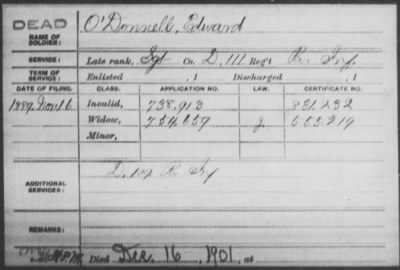 DEAD
O'Donnell, Edward
NAME OF SOLDIER:
SERVICE: Late rank, Sgt Co. D, 111 Reg't Pa. Inf.
TERM OF SERVICE: Enlisted , 1 Discharged , 1
DATE OF FILING. CLASS. APPLICATION NO. LAW. CERTIFICATE NO.
1889 Nov. 6 Invalid, 738,913 831,232
Widow, 754,659
Minor,
ADDITIONAL SERVICES:
REMARKS:
Died Dec. 16, 1901, at